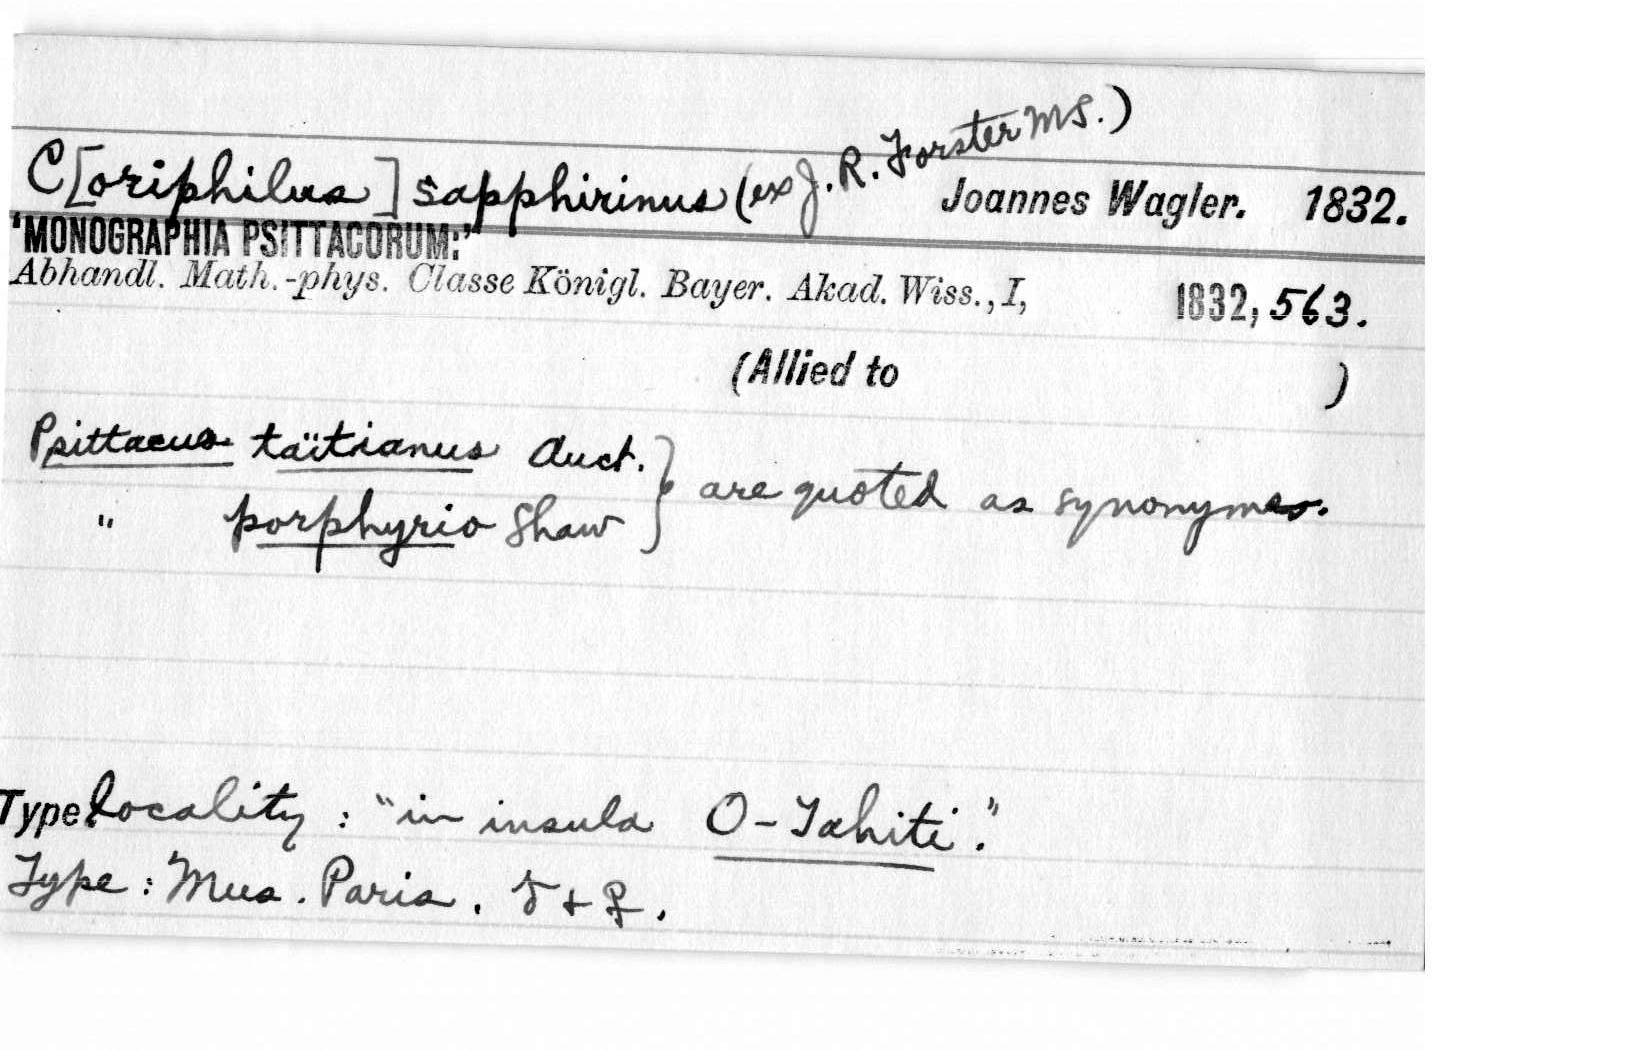 C[oriphilus] sapphirinus (ex J. R. Forster MS.)
Joannes Wagler. 1832.
'MONOGRAPHIA PSITTACORUM:'
Abhandl. Math.-phys. Classe Königl. Bayer. Akad. Wiss., I, 1832, 563.
(Allied to )
Psittacus taïtianus Auct. } are quoted as synonymes.
" porphyrio Shaw
Type locality : "in insula O-Tahiti."
Type : Mus. Paris. ♂ + ♀.